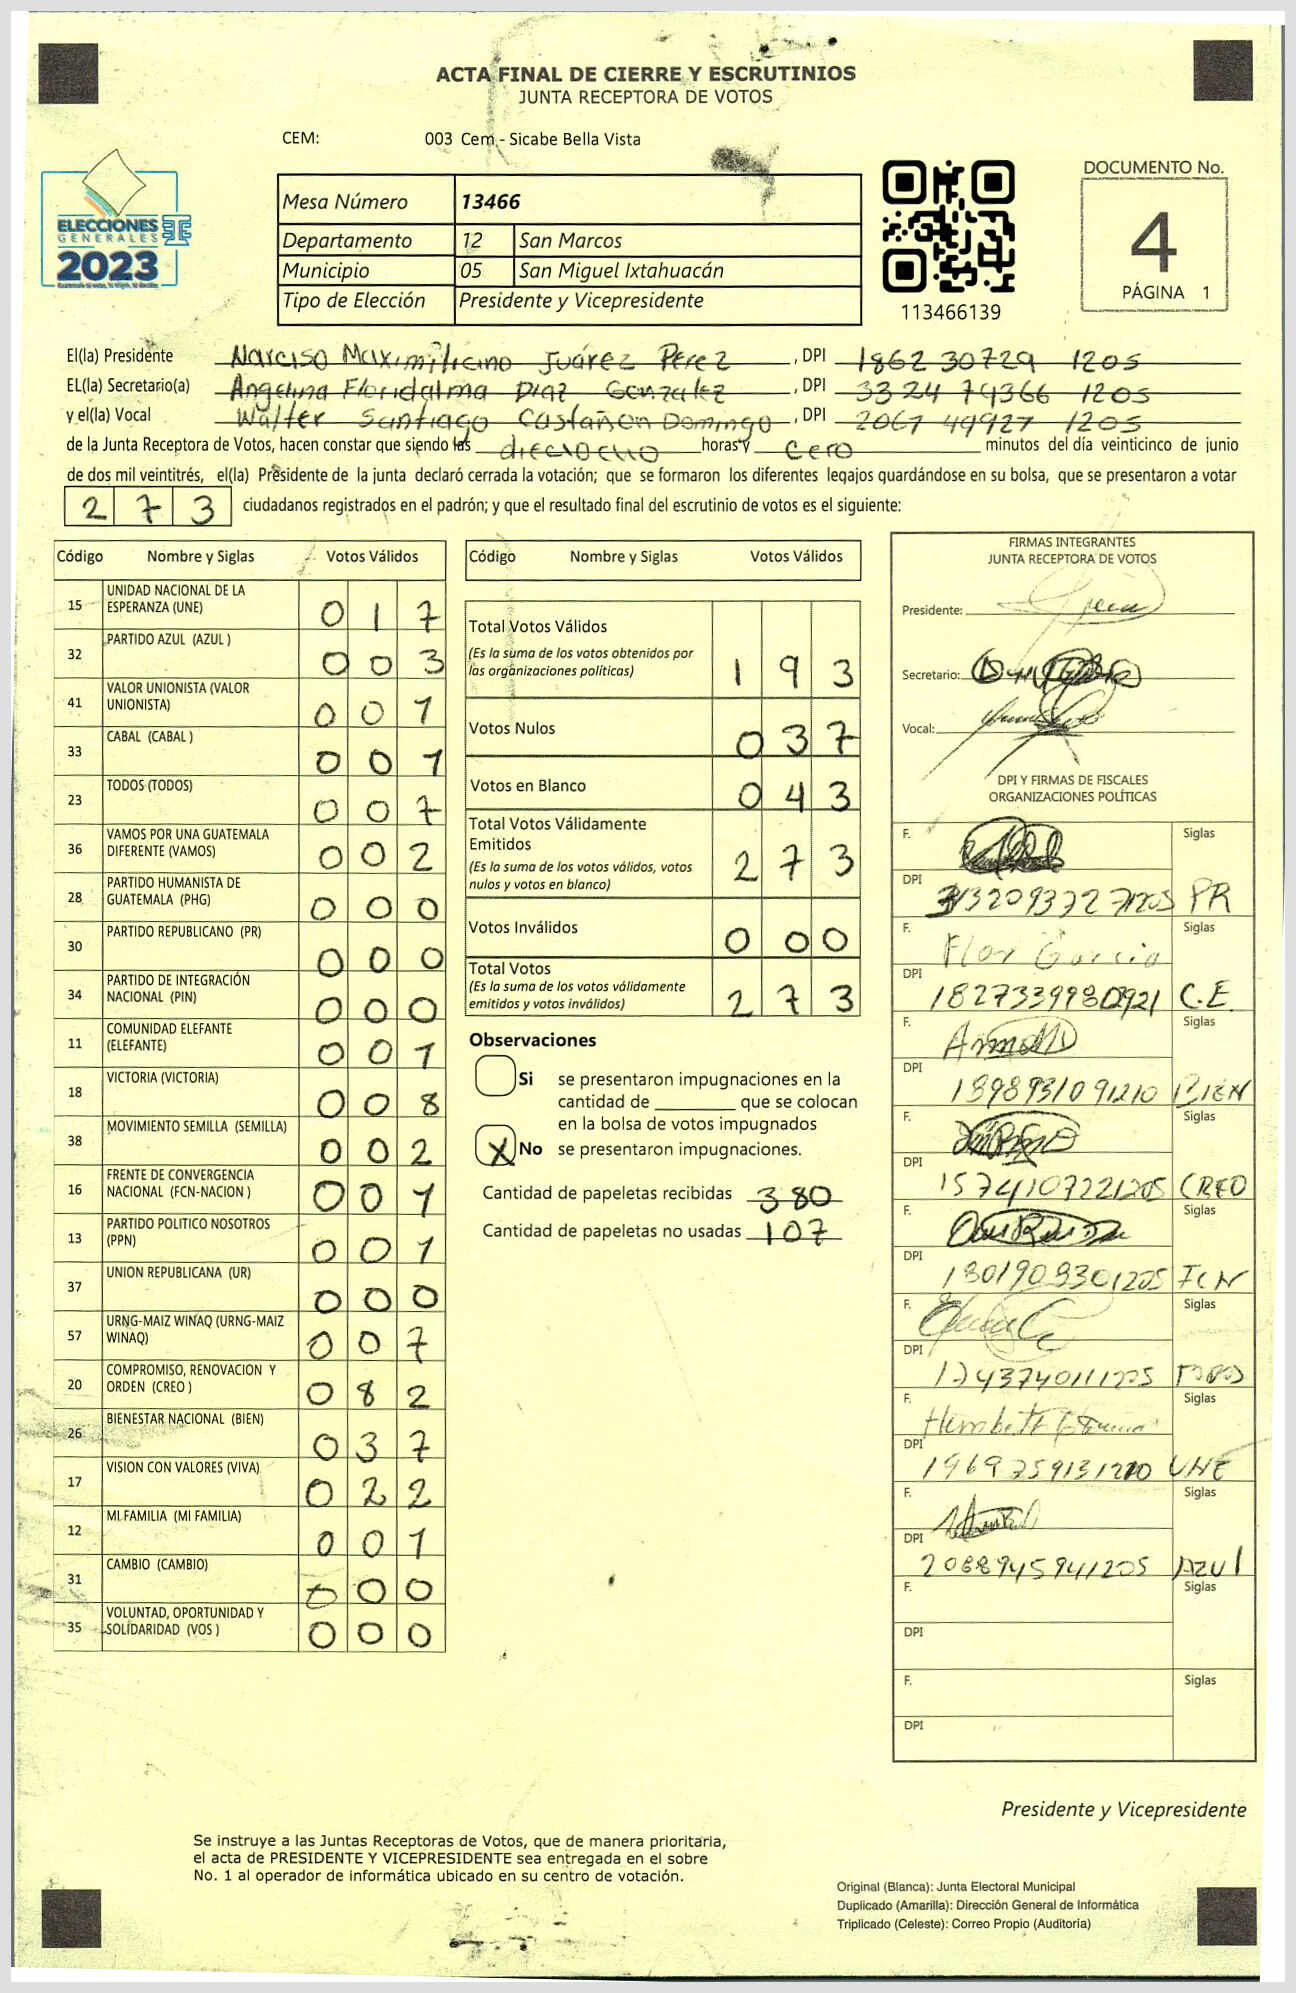 ACTA FINAL DE CIERRE Y ESCRUTINIOS
JUNTA RECEPTORA DE VOTOS
CEM: 003 Cem - Sicabe Bella Vista
ELECCIONES
GENERALES
2023
Mesa Número 13466
Departamento 12 San Marcos
Municipio 05 San Miguel Ixtahuacán
Tipo de Elección Presidente y Vicepresidente
113466139
DOCUMENTO No.
4
PÁGINA 1
El(la) Presidente Narciso Maximiliano Juárez Pérez , DPI 1862 30729 1205
EL(la) Secretario(a) Angelina Floridalma Díaz Gonzalez , DPI 3324 74366 1205
y el(la) Vocal Walter Santiago Castañon Domingo , DPI 2067 49927 1205
de la Junta Receptora de Votos, hacen constar que siendo las dieciocho horas y cero minutos del día veinticinco de junio
de dos mil veintitrés, el(la) Presidente de la junta declaró cerrada la votación; que se formaron los diferentes legajos guardándose en su bolsa, que se presentaron a votar
273 ciudadanos registrados en el padrón; y que el resultado final del escrutinio de votos es el siguiente:
Código Nombre y Siglas Votos Válidos
15 UNIDAD NACIONAL DE LA ESPERANZA (UNE) 017
32 PARTIDO AZUL (AZUL ) 003
41 VALOR UNIONISTA (VALOR UNIONISTA) 001
33 CABAL (CABAL ) 001
23 TODOS (TODOS) 007
36 VAMOS POR UNA GUATEMALA DIFERENTE (VAMOS) 002
28 PARTIDO HUMANISTA DE GUATEMALA (PHG) 000
30 PARTIDO REPUBLICANO (PR) 000
34 PARTIDO DE INTEGRACIÓN NACIONAL (PIN) 000
11 COMUNIDAD ELEFANTE (ELEFANTE) 001
18 VICTORIA (VICTORIA) 008
38 MOVIMIENTO SEMILLA (SEMILLA) 002
16 FRENTE DE CONVERGENCIA NACIONAL (FCN-NACION ) 001
13 PARTIDO POLITICO NOSOTROS (PPN) 001
37 UNION REPUBLICANA (UR) 000
57 URNG-MAIZ WINAQ (URNG-MAIZ WINAQ) 007
20 COMPROMISO, RENOVACION Y ORDEN (CREO ) 082
26 BIENESTAR NACIONAL (BIEN) 037
17 VISION CON VALORES (VIVA) 022
12 MI FAMILIA (MI FAMILIA) 001
31 CAMBIO (CAMBIO) 000
35 VOLUNTAD, OPORTUNIDAD Y SOLIDARIDAD (VOS ) 000
Código Nombre y Siglas Votos Válidos
Total Votos Válidos 193
(Es la suma de los votos obtenidos por
las organizaciones políticas)
Votos Nulos 037
Votos en Blanco 043
Total Votos Válidamente
Emitidos 273
(Es la suma de los votos válidos, votos
nulos y votos en blanco)
Votos Inválidos 000
Total Votos 273
(Es la suma de los votos válidamente
emitidos y votos inválidos)
Observaciones
Si se presentaron impugnaciones en la
cantidad de ________ que se colocan
en la bolsa de votos impugnados
X No se presentaron impugnaciones.
Cantidad de papeletas recibidas 380
Cantidad de papeletas no usadas 107
FIRMAS INTEGRANTES
JUNTA RECEPTORA DE VOTOS
Presidente:
Secretario:
Vocal:
DPI Y FIRMAS DE FISCALES
ORGANIZACIONES POLÍTICAS
F. Siglas
DPI PR
F. Flor Garcia Siglas
DPI C.E
F. Siglas
DPI 1898931091210 BIEN
F. Siglas
DPI 1574107221205 CREO
F. Siglas
DPI 1801909301205 FCN
F. Siglas
DPI 1743740111205 TODOS
F. Siglas
DPI 1969759131210 UNE
F. Siglas
DPI 2088945941205 AZUL
F. Siglas
DPI
F. Siglas
DPI
Presidente y Vicepresidente
Se instruye a las Juntas Receptoras de Votos, que de manera prioritaria,
el acta de PRESIDENTE Y VICEPRESIDENTE sea entregada en el sobre
No. 1 al operador de informática ubicado en su centro de votación.
Original (Blanca): Junta Electoral Municipal
Duplicado (Amarilla): Dirección General de Informática
Triplicado (Celeste): Correo Propio (Auditoria)